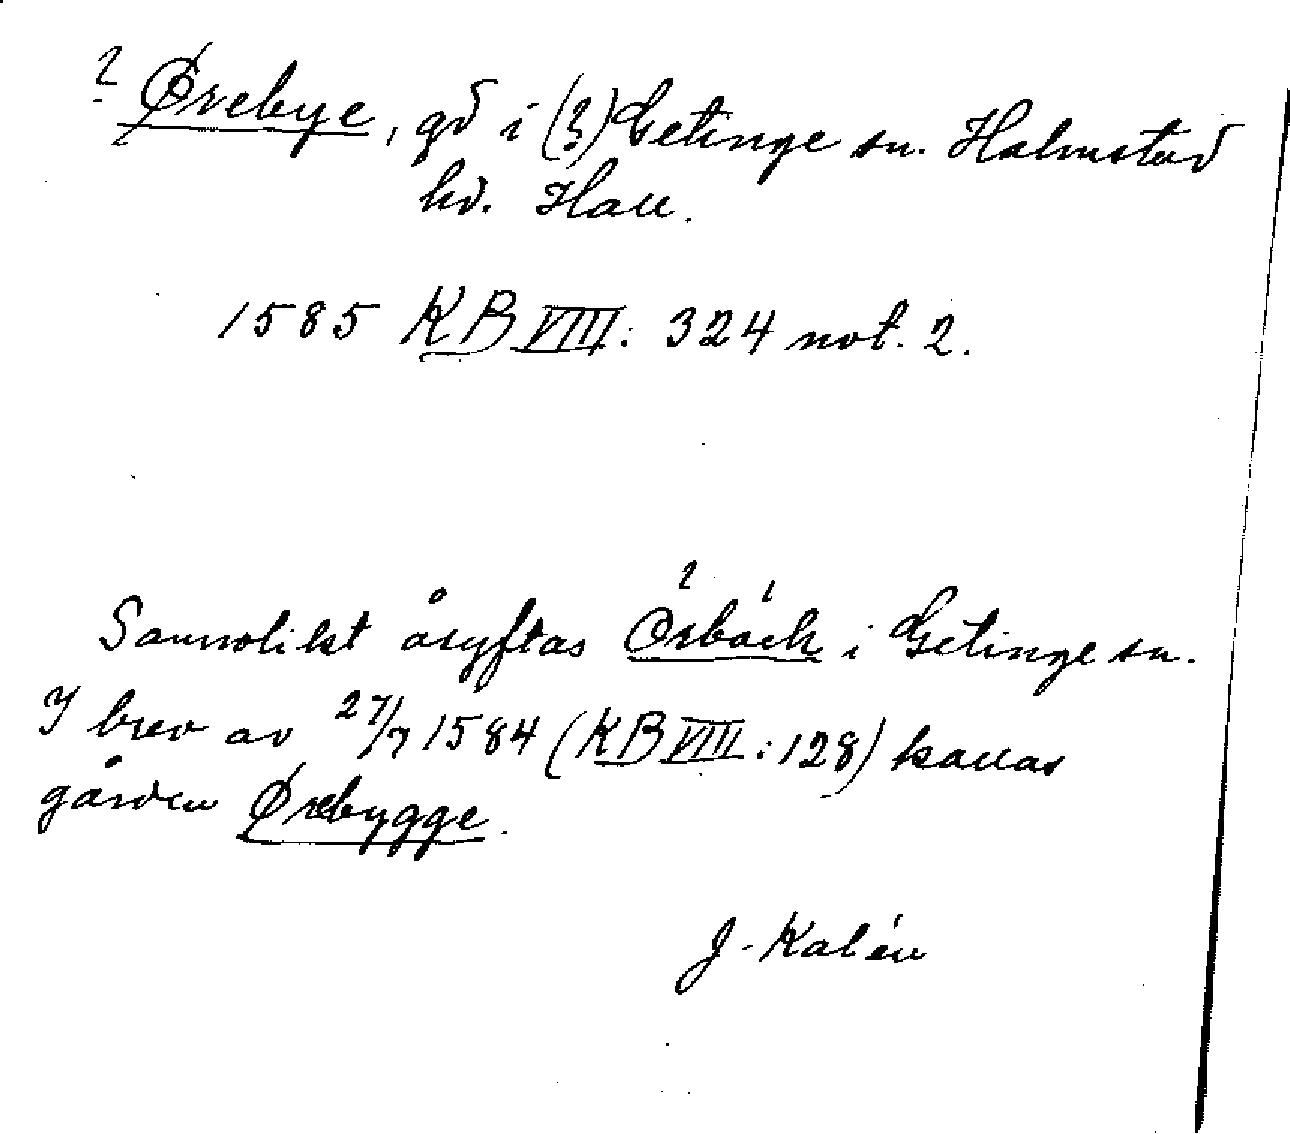 ? Ørebye, gd i (?) Getinge sn. Halmstad
hd. Hall.
1585 KB VIII: 324 not. 2.
Sannolikt åsyftas Örbäck i Getinge sn.
I brev av 27/7 1584 (KB VIII: 128) kallas
gården Ørebygge.
J. Kalén